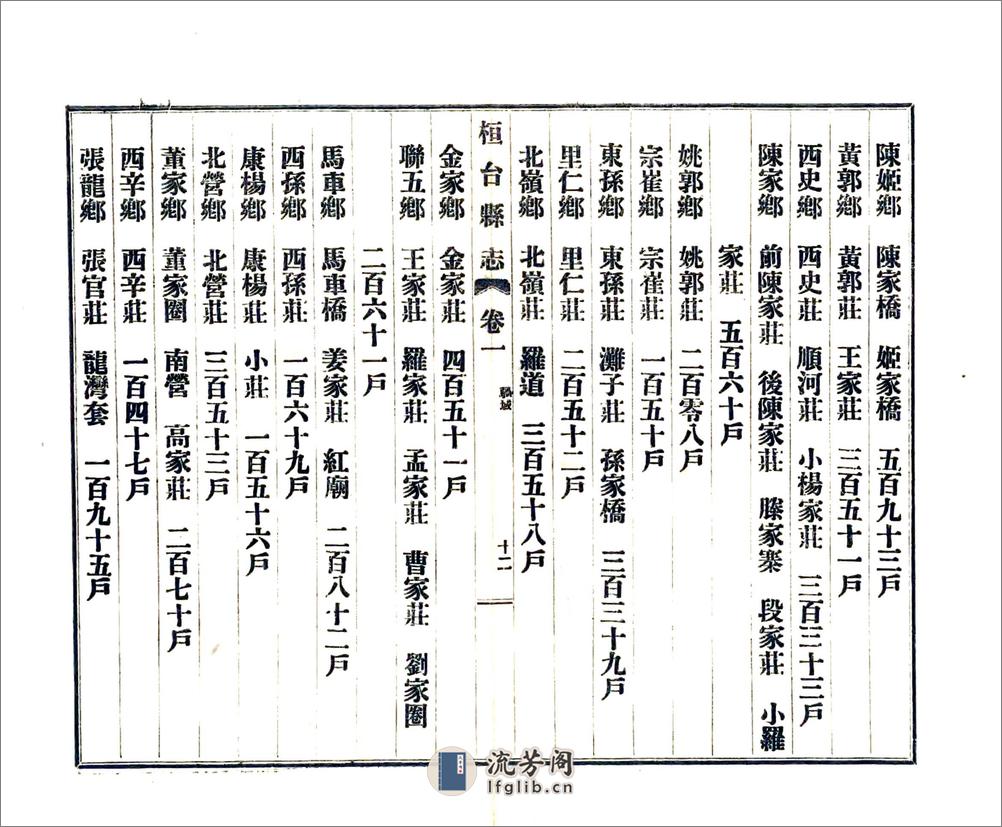 陳姬鄉 陳家橋 姬家橋 五百九十三戶
黃郭鄉 黃郭莊 王家莊 三百五十一戶
西史鄉 西史莊 順河莊 小楊家莊 三百三十三戶
陳家鄉 前陳家莊 後陳家莊 滕家寨 段家莊 小羅
家莊 五百六十戶
姚郭鄉 姚郭莊 二百零八戶
宗崔鄉 宗崔莊 一百五十戶
東孫鄉 東孫莊 灘子莊 孫家橋 三百三十九戶
里仁鄉 里仁莊 二百五十二戶
北嶺鄉 北嶺莊 羅道 三百五十八戶
桓台縣志 卷一 疆域 十二
金家鄉 金家莊 四百五十一戶
聯五鄉 王家莊 羅家莊 孟家莊 曹家莊 劉家圈
二百六十一戶
馬車鄉 馬車橋 姜家莊 紅廟 二百八十二戶
西孫鄉 西孫莊 一百六十九戶
康楊鄉 康楊莊 小莊 一百五十六戶
北營鄉 北營莊 三百五十三戶
董家鄉 董家圈 南營 高家莊 二百七十戶
西辛鄉 西辛莊 一百四十七戶
張龍鄉 張官莊 龍灣套 一百九十五戶
流芳阁
lfglib.cn